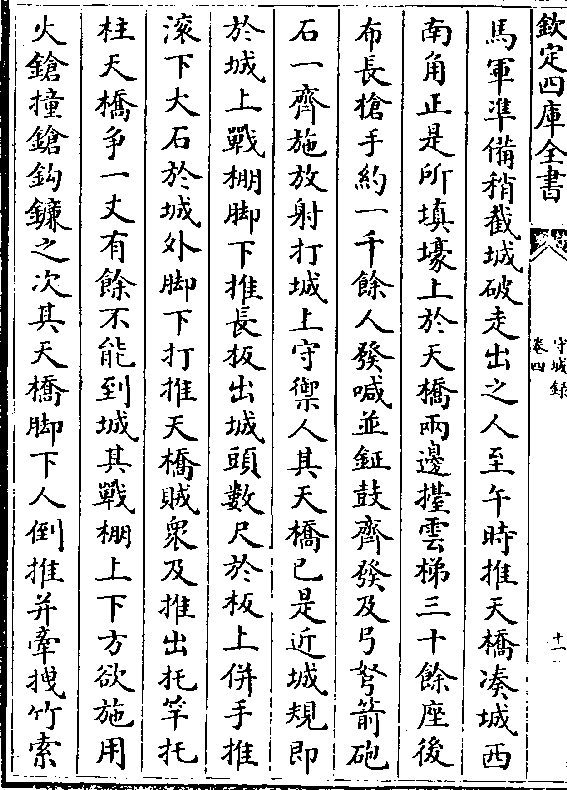 欽定四庫全書
守城録
卷四
十一
馬軍準備稍截城破走出之人至午時推天橋凑城西
南角正是所填壕上於天橋兩邊擡雲梯三十餘座後
布長槍手約一千餘人發喊並鉦鼓齊發及弓弩箭砲
石一齊施放射打城上守禦人其天橋已是近城規即
於城上戰棚脚下推長板出城頭數尺於板上併手推
滚下大石於城外脚下打推天橋賊衆及推出托竿托
柱天橋争一丈有餘不能到城其戰棚上下方欲施用
火鎗撞鎗鈎鐮之次其天橋脚下人倒推并牽拽竹索